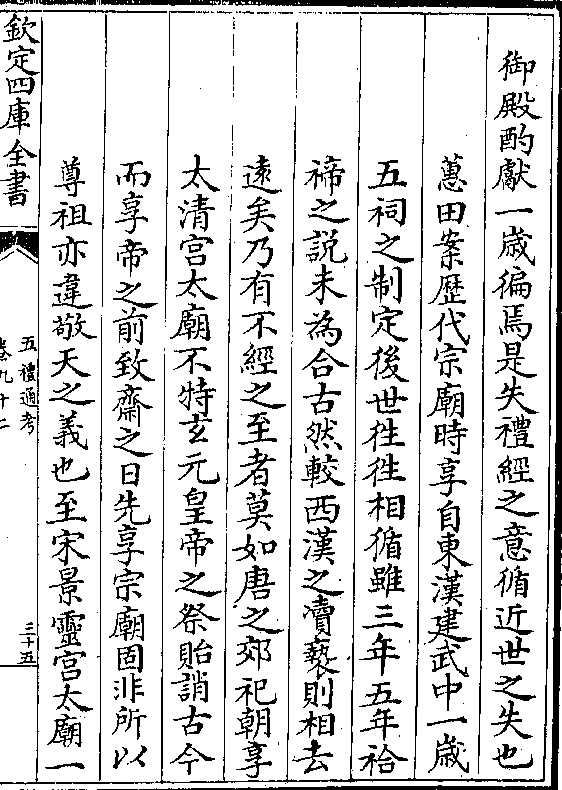 御殿酌獻一歳徧焉是失禮經之意循近世之失也
蕙田案歴代宗廟時享自東漢建武中一歳
五祠之制定後世徃徃相循雖三年五年祫
禘之説未為合古然較西漢之瀆䙝則相去
逺矣乃有不經之至者莫如唐之郊祀朝享
太清宫太廟不特玄元皇帝之祭貽誚古今
而享帝之前致齋之日先享宗廟固非所以
尊祖亦違敬天之義也至宋景靈宫太廟一
欽定四庫全書
五禮通考
卷九十二
三十五